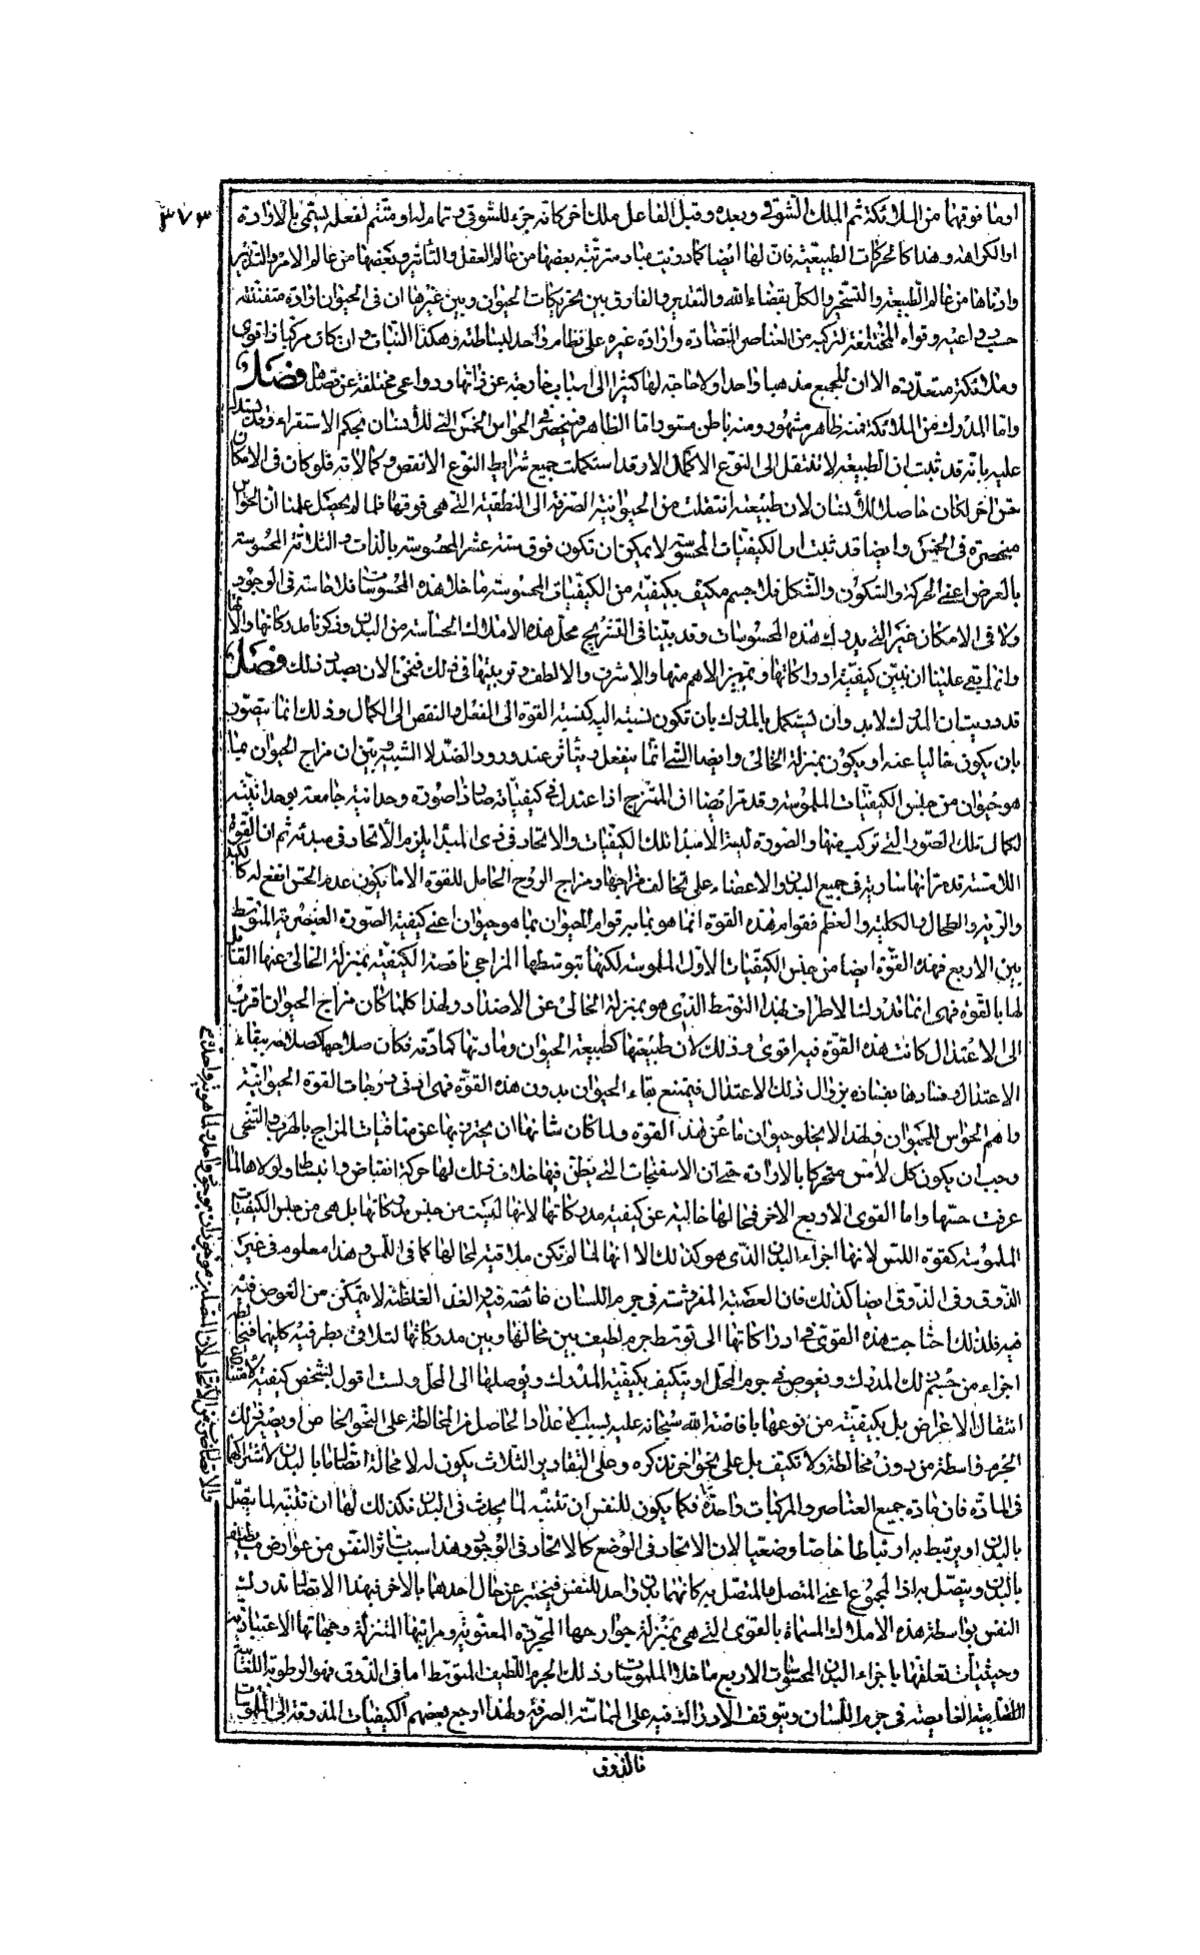 ٣٧٣
او ما فوقهما من الملائكة ثم الملك الشوقي وبعده وقبل الفاعل ملك اخر كانه جزء للشوقي وتمام له او متمم لفعله يسمى بالارادة
او الكراهة وهذا كالمحركات الطبيعية فان لها ايضا كما دريت مباد مترتبة بعضها من عالم العقل والتأثير وبعضها من عالم الامر والتدبير
وادناها من عالم الطبيعة والتسخير والكل بقضاء الله والتقدير والفارق بين تحريكات الحيوان وبين غيرها ان في الحيوان ارادة متفننة
حسب دواعيه وقواه المختلفة لتركبه من العناصر المتضادة وارادة غيره على نظام واحد لبساطته وهكذا النبات وان كان مركبا ذا قوى
وملائكة متعددة الا ان للجميع مذهبا واحدا ولا حاجة لها كثيرا الى اسباب خارجة عن ذاتها ودواعي مختلفة عن فصل
واما المدرك من الملائكة فمنه ظاهر مشهور ومنه باطن مستور اما الظاهر فينحصر في الحواس الخمس التي للانسان بحكم الاستقراء وقد يستدل
عليه بانه قد ثبت ان الطبيعة لا تنتقل الى النوع الاكمل الا وقد استكملت جميع شرايط النوع الانقص وكمالاته فلو كان في الامكان
حس اخر لكان حاصلا للانسان لان طبيعته انتقلت من الحيوانية الصرفة الى النطقية التي هي فوقها فلما لم يحصل علمنا ان الحواس
منحصرة في الخمس وايضا قد ثبت ان الكيفيات المحسوسة لا يمكن ان تكون فوق ستة عشر المحسوسة بالذات والثلاثة المحسوسة
بالعرض اعني الحركة والسكون والشكل فلا جسم مكيف بكيفية من الكيفيات المحسوسة ما خلا هذه المحسوسات فلا حاسة في الوجود
ولا في الامكان غير التي يدرك هذه المحسوسات وقد بينا في التشريح محل هذه الاملاك الحساسة من البدن وذكرنا مدركاتها
وانما بقي علينا ان نبين كيفية ادراكاتها وتمييز الاهم منها والاشرف والالطف وترتيبها في ذلك فنحن الان بصدد ذلك فصل
قد دريت ان المدرك لا بد وان يستكمل بالمدرك بان تكون نسبته اليه كنسبة القوة الى الفعل والنقص الى الكمال وذلك انما يتصور
بان يكون خاليا عنه او يكون بمنزلة الخالي وايضا الشيء انما ينفعل ويتأثر عند ورود الضد لا الشبيه وبين ان مزاج الحيوان بما
هو حيوان من جنس الكيفيات الملموسة وقد مر ايضا ان الممتزج اذا اعتدل في كيفياته صار ذا صورة وحدانية جامعة بوحدانيته
لكمال تلك الصور التي تركب منها والصورة ليست الا مبدأ تلك الكيفيات والاتحاد في ذي المبدأ يلزم الاتحاد في مبدئه ثم ان القوة
اللامسة قد مر انها سارية في جميع البدن والاعضاء على تخالف مزاجها ومزاج الروح الحامل للقوة الا ما يكون عدم الحس انفع له كالكبد
والرية والطحال والكلية والعظم فقوام هذه القوة انما هو بما به قوام الحيوان بما هو حيوان اعني كيفية الصورة العنصرية المتوسطة
بين الاربع فهذه القوة ايضا من جنس الكيفيات الاول الملموسة لكنها بتوسطها المزاجي ناقصة الكيفية بمنزلة الخالي عنها القابل
لها بالقوة فهي انما تدرك الاطراف بهذا التوسط الذي هو بمنزلة الخالي عن الاضداد ولهذا كلما كان مزاج الحيوان اقرب
الى الاعتدال كانت هذه القوة فيه اقوى وذلك لان طبيعتها كطبيعة الحيوان ومادتها كمادته فكان صلاحها كصلاحه ببقاء
الاعتدال وفسادها بفساده بزوال ذلك الاعتدال فيمتنع بقاء الحيوان بدون هذه القوة فهي ادنى درجات القوة الحيوانية
واهم الحواس للحيوان ولهذا لا يخلو حيوان ما عن هذه القوة ولما كان شانها ان يحترز بها عن منافيات المزاج بالهرب والتنحي
وجب ان يكون كل لامس متحركا بالارادة حتى ان الاسفنجات التي يظن فيها خلاف ذلك لها حركة انقباض وانبساط ولولاها لما
عرفت حسها واما القوى الاربع الاخر فمحالها خالية عن كيفية مدركاتها لانها ليست من جنس مدركاتها بل هي من جنس الكيفيات
الملموسة كقوة اللمس لانها اجزاء البدن الذي هو كذلك الا انها لما لم تكن ملاقية لمحالها كما في اللمس وهذا معلوم في غير
الذوق وفي الذوق ايضا كذلك فان العصبة المفروشة في جرم اللسان غائصة فيه والغذاء لغلظته لا يتمكن من الغوص فيه
فلذلك احتاجت هذه القوى في ادراكاتها الى توسط جرم لطيف بين محالها وبين مدركاتها لتلاقي بطرفيه كليهما
اجزاء من جسم ذلك المدرك ويغوص في جرم المحل او يتكيف بكيفية المدرك ويوصلها الى المحل ولست اقول بشخص كيفية لامتناع
انتقال الاعراض بل بكيفية من نوعها بافاضة الله سبحانه عليه بسبب الاعداد الحاصل من المخالطة على النحو الخاص او يصير ذلك
الجرم واسطة من دون مخالطة ولا تكيف بل على نحو اخر نذكره وعلى التقادير الثلاث يكون له لا محالة اتصال ما بالبدن لاشتراكهما
في المادة فان مادة جميع العناصر والمركبات واحدة فكما يكون للنفس ان تتنبه لما يحدث في البدن فكذلك لها ان تتنبه لما يتصل
بالبدن او يرتبط به ارتباطا خاصا وضعيا لان الاتحاد في الوضع كالاتحاد في الوجود وهذا سبب تاثر النفس من عوارض ما يطيف
بالبدن ويتصل به اذ المجموع اعني المتصل والمتصل به كانهما بدن واحد للنفس فيخبر عن حال احدهما بالاخر فبهذا الاتصال تدرك
النفس بواسطة هذه الاملاك المسماة بالقوى التي هي بمنزلة جوارحها المجردة المعنوية ومراتبها المتنزلة وجهاتها الاعتبارية
وحيثيات تعلقها باجزاء البدن المحسوسات الاربع ما خلا الملموسات وذلك الجرم اللطيف المتوسط اما في الذوق فهو الرطوبة اللعابية
الغايصة في جرم اللسان ويتوقف الادراك فيه على المماسة الصرفة ولهذا ارجع بعضهم الكيفيات المذوقة الى الملموسات
فالذوق